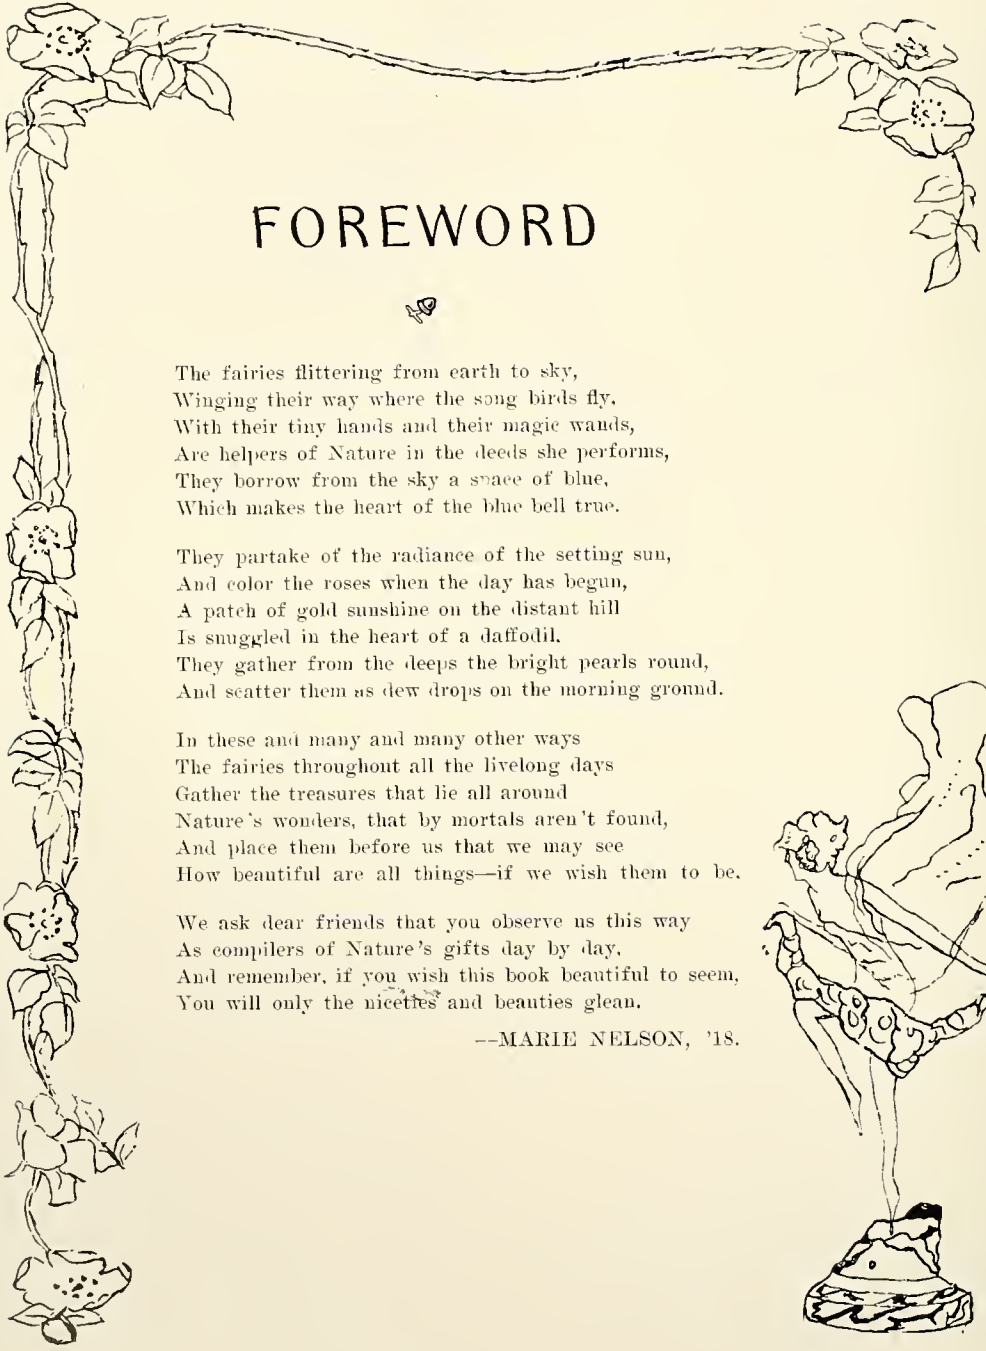 FOREWORD
The fairies flittering from earth to sky,
Winging their way where the song birds fly,
With their tiny hands and their magic wands,
Are helpers of Nature in the deeds she performs,
They borrow from the sky a space of blue,
Which makes the heart of the blue bell true.
They partake of the radiance of the setting sun,
And color the roses when the day has begun,
A patch of gold sunshine on the distant hill
Is snuggled in the heart of a daffodil.
They gather from the deeps the bright pearls round,
And scatter them as dew drops on the morning ground.
In these and many and many other ways
The fairies throughout all the livelong days
Gather the treasures that lie all around
Nature's wonders, that by mortals aren't found,
And place them before us that we may see
How beautiful are all things—if we wish them to be.
We ask dear friends that you observe us this way
As compilers of Nature's gifts day by day,
And remember, if you wish this book beautiful to seem,
You will only the nicettes and beauties glean.
--MARIE NELSON, '18.